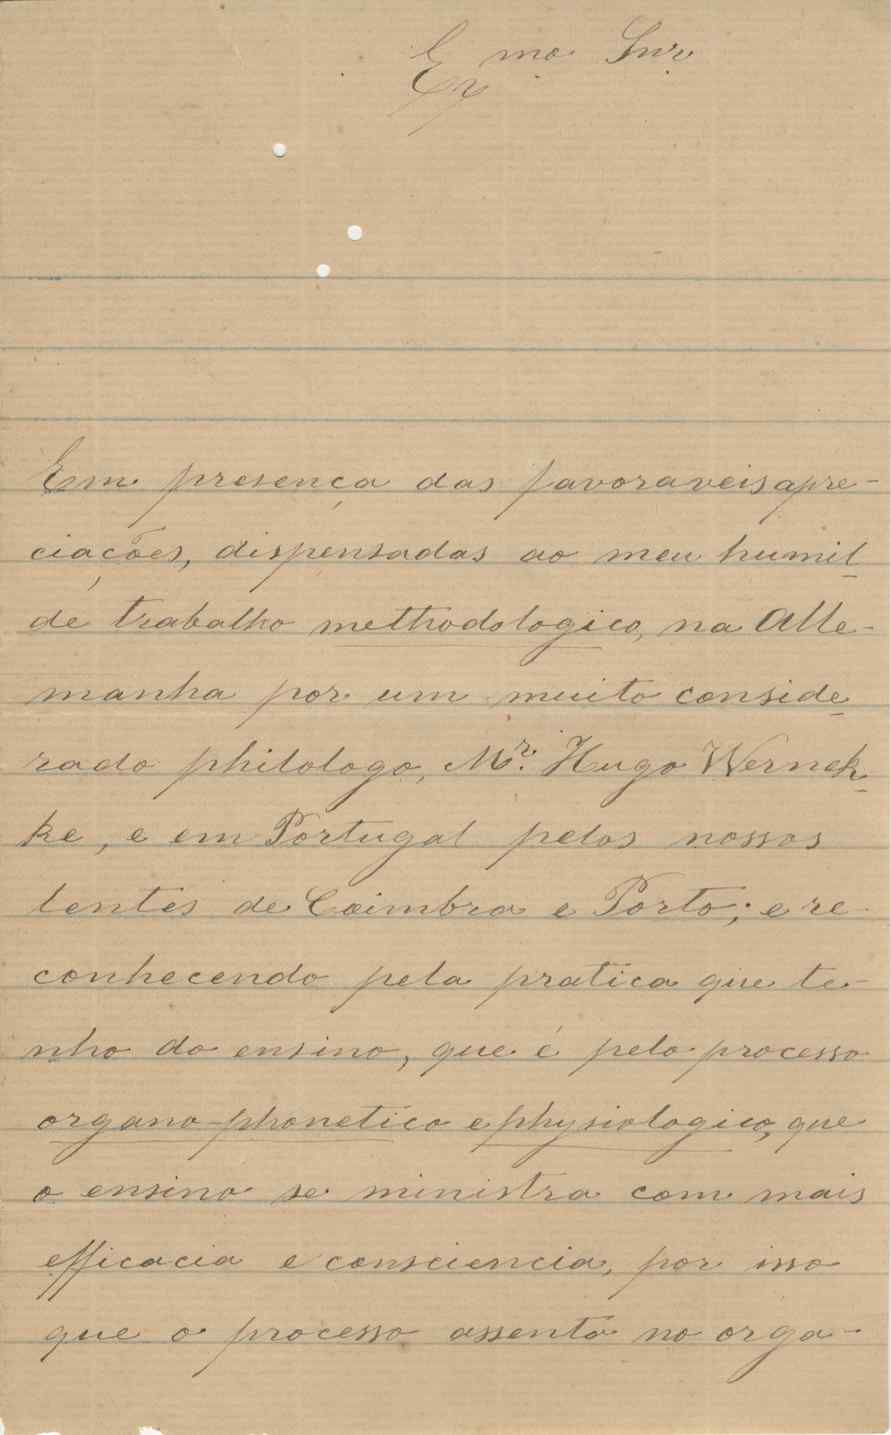 Exmo Snr
Em presença das favoraveis apre-
ciações, dispensadas ao meu humil-
de trabalho methodologico, na Alle-
manha por um muito conside-
rado philologo, Mr. Hugo Wernek-
ke, e em Portugal pelos nossos
lentes de Coimbra e Porto; e re-
conhecendo pela pratica que te-
nho do ensino, que é pelo processo
organo-phonetico e physiologico, que
o ensino se ministra com mais
efficacia e consciencia, por isso
que o processo assenta no orga-